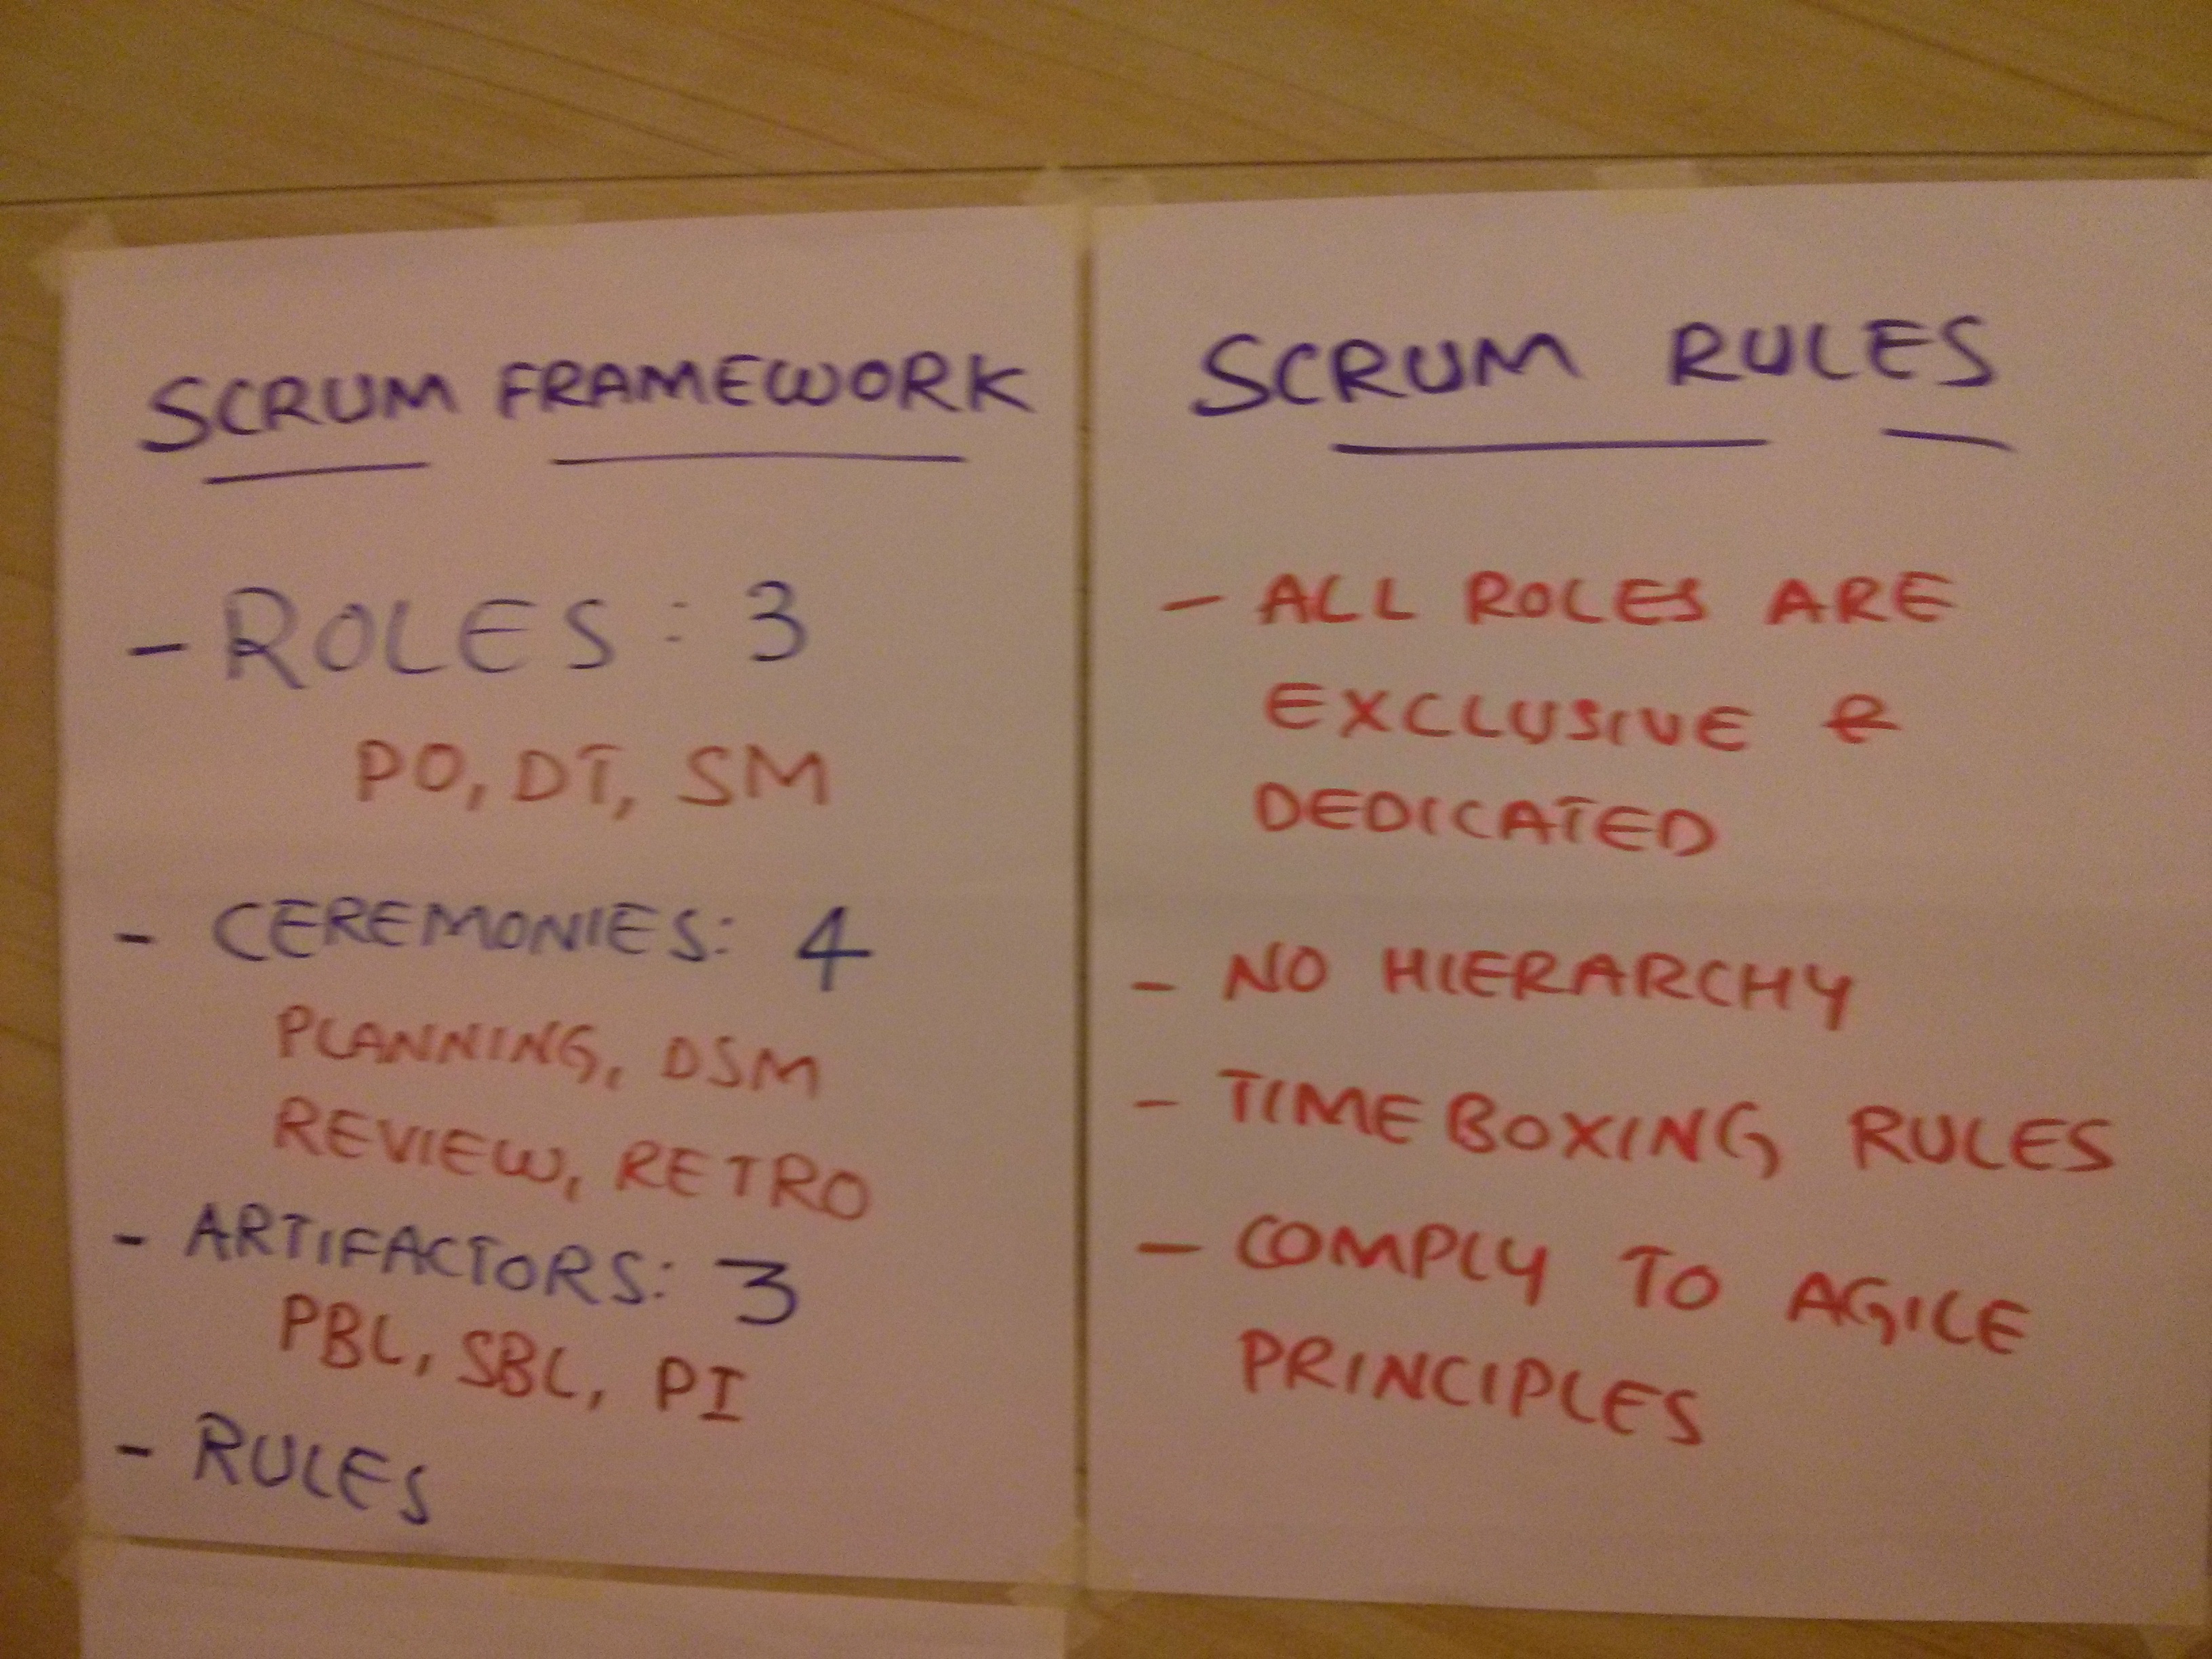 SCRUM FRAMEWORK
- ROLES : 3
PO, DT, SM
- CEREMONIES: 4
PLANNING, DSM
REVIEW, RETRO
- ARTIFACTORS: 3
PBL, SBL, PI
- RULES
SCRUM RULES
- ALL ROLES ARE
EXCLUSIVE &
DEDICATED
- NO HIERARCHY
- TIME BOXING RULES
- COMPLY TO AGILE
PRINCIPLES